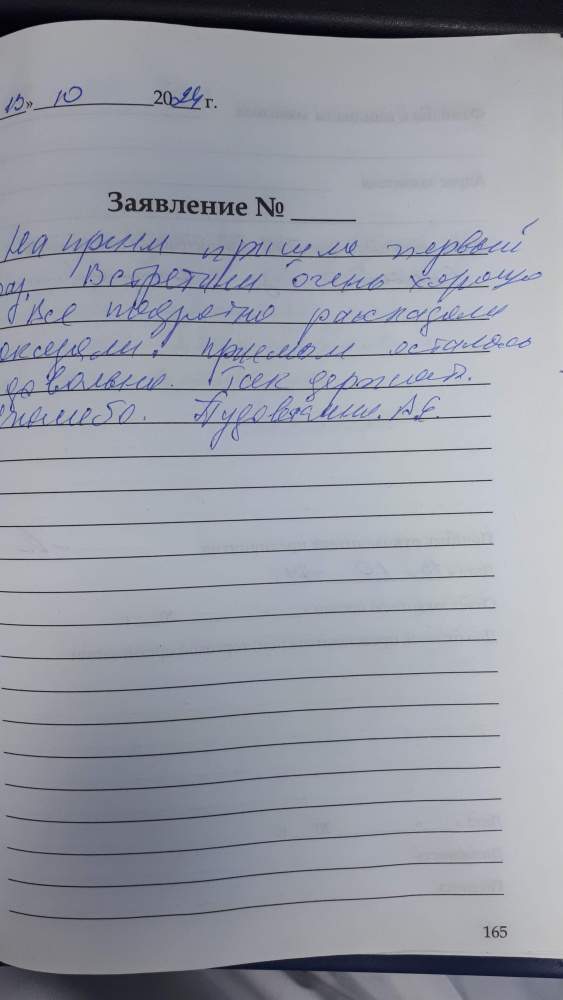 13» 10 2024 г.
Заявление №
На прием пришла первый
раз. Встретили очень хорошо
Все подробно рассказали
показали. приемом осталась
довольна. Так держать.
Спасибо. А.Е.
165